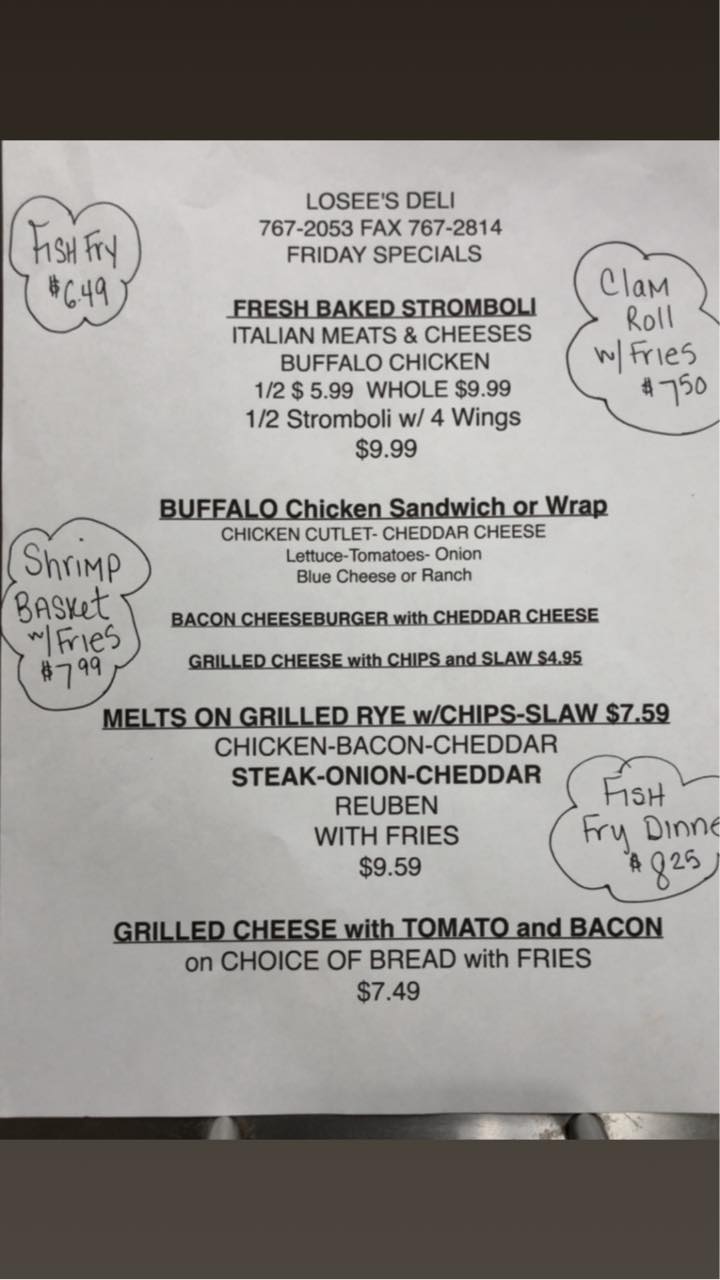 LOSEE'S DELI
767-2053 FAX 767-2814
FRIDAY SPECIALS
FISH FRY
$6.49
Clam
Roll
w/ Fries
$7.50
FRESH BAKED STROMBOLI
ITALIAN MEATS & CHEESES
BUFFALO CHICKEN
1/2 $ 5.99 WHOLE $9.99
1/2 Stromboli w/ 4 Wings
$9.99
BUFFALO Chicken Sandwich or Wrap
CHICKEN CUTLET- CHEDDAR CHEESE
Lettuce-Tomatoes- Onion
Blue Cheese or Ranch
Shrimp
BASket
w/ Fries
$7.99
BACON CHEESEBURGER with CHEDDAR CHEESE
GRILLED CHEESE with CHIPS and SLAW $4.95
MELTS ON GRILLED RYE w/CHIPS-SLAW $7.59
CHICKEN-BACON-CHEDDAR
STEAK-ONION-CHEDDAR
REUBEN
WITH FRIES
$9.59
FISH
Fry Dinne
$8.25
GRILLED CHEESE with TOMATO and BACON
on CHOICE OF BREAD with FRIES
$7.49